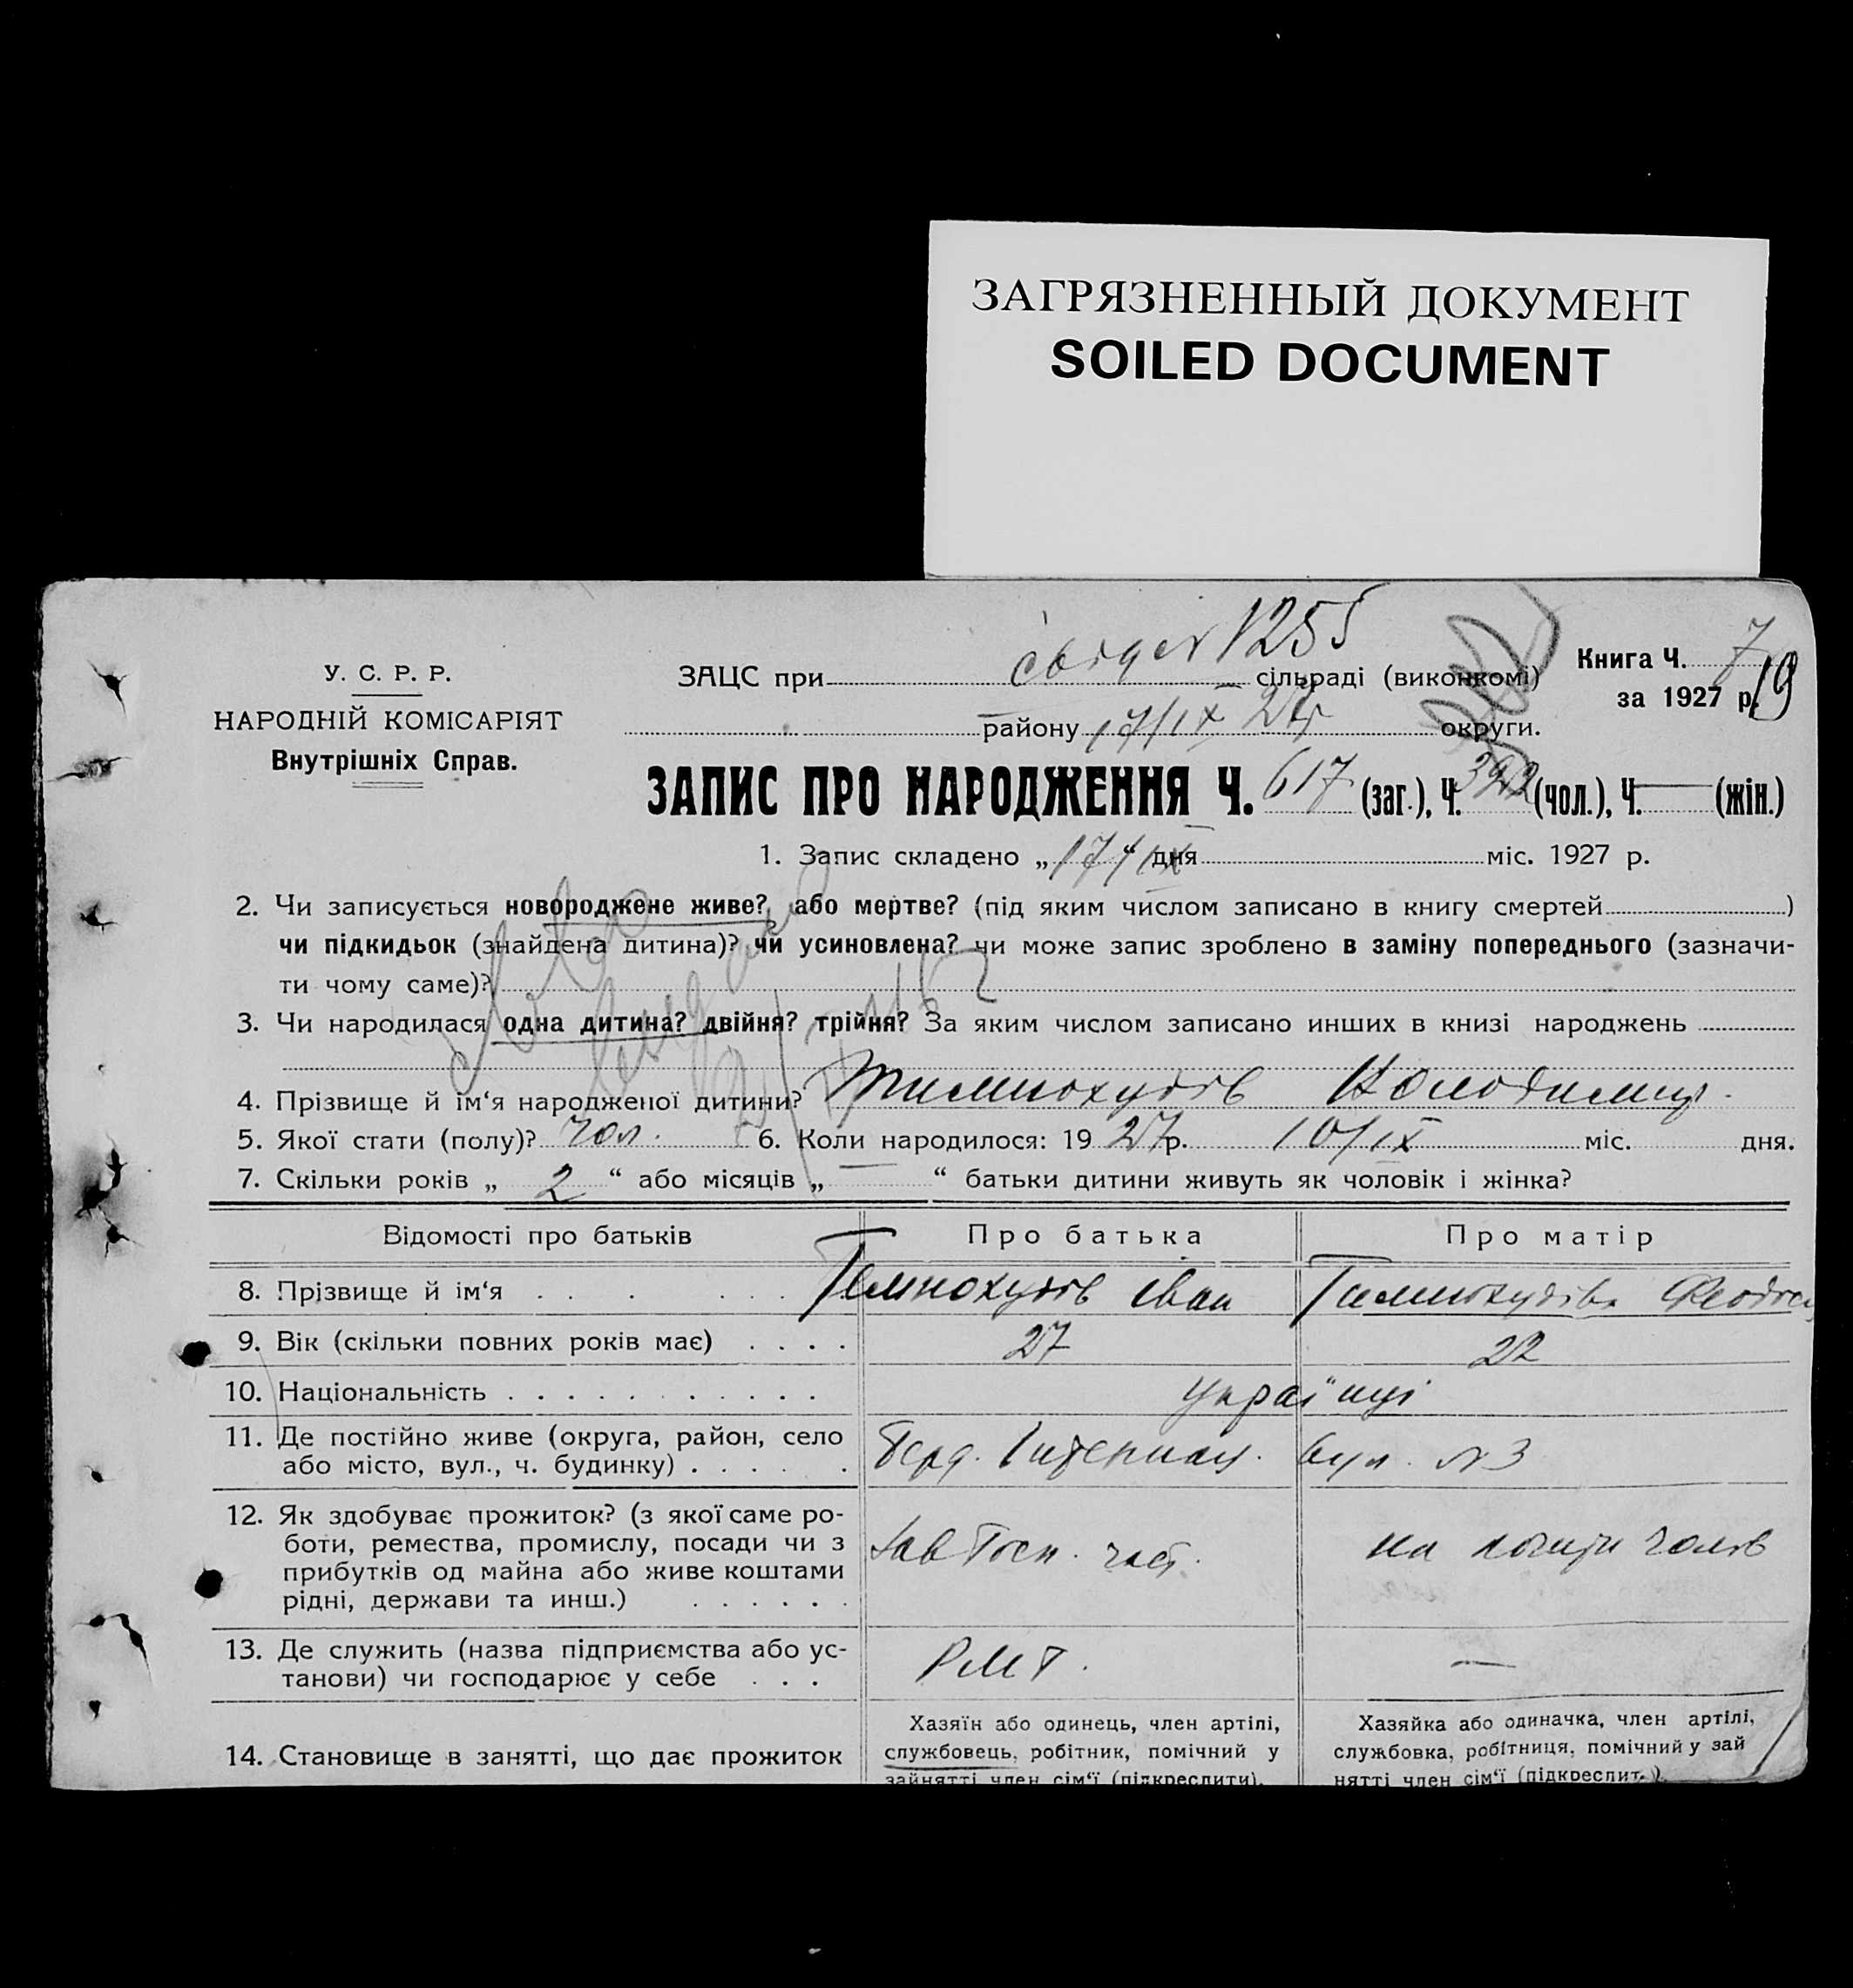 ЗАГРЯЗНЕННЫЙ ДОКУМЕНТ
SOILED DOCUMENT
У. С. Р. Р.
НАРОДНІЙ КОМІСАРІЯТ
Внутрішніх Справ.
ЗАЦС при 1255 сільраді (виконкомі)
району 17/IX 27р округи.
Книга Ч. 7
за 1927 р. 19
ЗАПИС ПРО НАРОДЖЕННЯ Ч. 617 (заг.), Ч. 322 (чол.), Ч. — (жін.)
1. Запис складено „17/IX“ дня міс. 1927 р.
2. Чи записується новороджене живе? або мертве? (під яким числом записано в книгу смертей )
чи підкидьок (знайдена дитина)? чи усиновлена? чи може запис зроблено в заміну попереднього (зазначи-
ти чому саме)?
3. Чи народилася одна дитина? двійня? трійня? За яким числом записано инших в книзі народжень
4. Прізвище й ім‘я народженої дитини? Володимир.
5. Якої стати (полу)? чол. 6. Коли народилося: 1927р. 10/IX міс. дня.
7. Скільки років „ 2 “ або місяців „ — “ батьки дитини живуть як чоловік і жінка?
Відомості про батьків Про батька Про матір
8. Прізвище й ім‘я . . . . . . Темнохудів Іван
9. Вік (скільки повних років має) . . . . 27 22
10. Національність . . . . . . . . . . . Українці
11. Де постійно живе (округа, район, село
або місто, вул., ч. будинку) . . . . . . вул. №3
12. Як здобуває прожиток? (з якої саме ро-
боти, ремества, промислу, посади чи з
прибутків од майна або живе коштами
рідні, держави та инш.) . . . . . .
Зав Госп. част. на кошти чолов
13. Де служить (назва підприємства або ус-
танови) чи господарює у себе . . . РМТ. —
14. Становище в занятті, що дає прожиток
Хазяїн або одинець, член артілі,
службовець, робітник, помічний у
зайнятті член сім‘ї (підкреслити).
Хазяйка або одиначка, член артілі,
службовка, робітниця, помічний у зай
нятті член сім‘ї (підкреслит. )